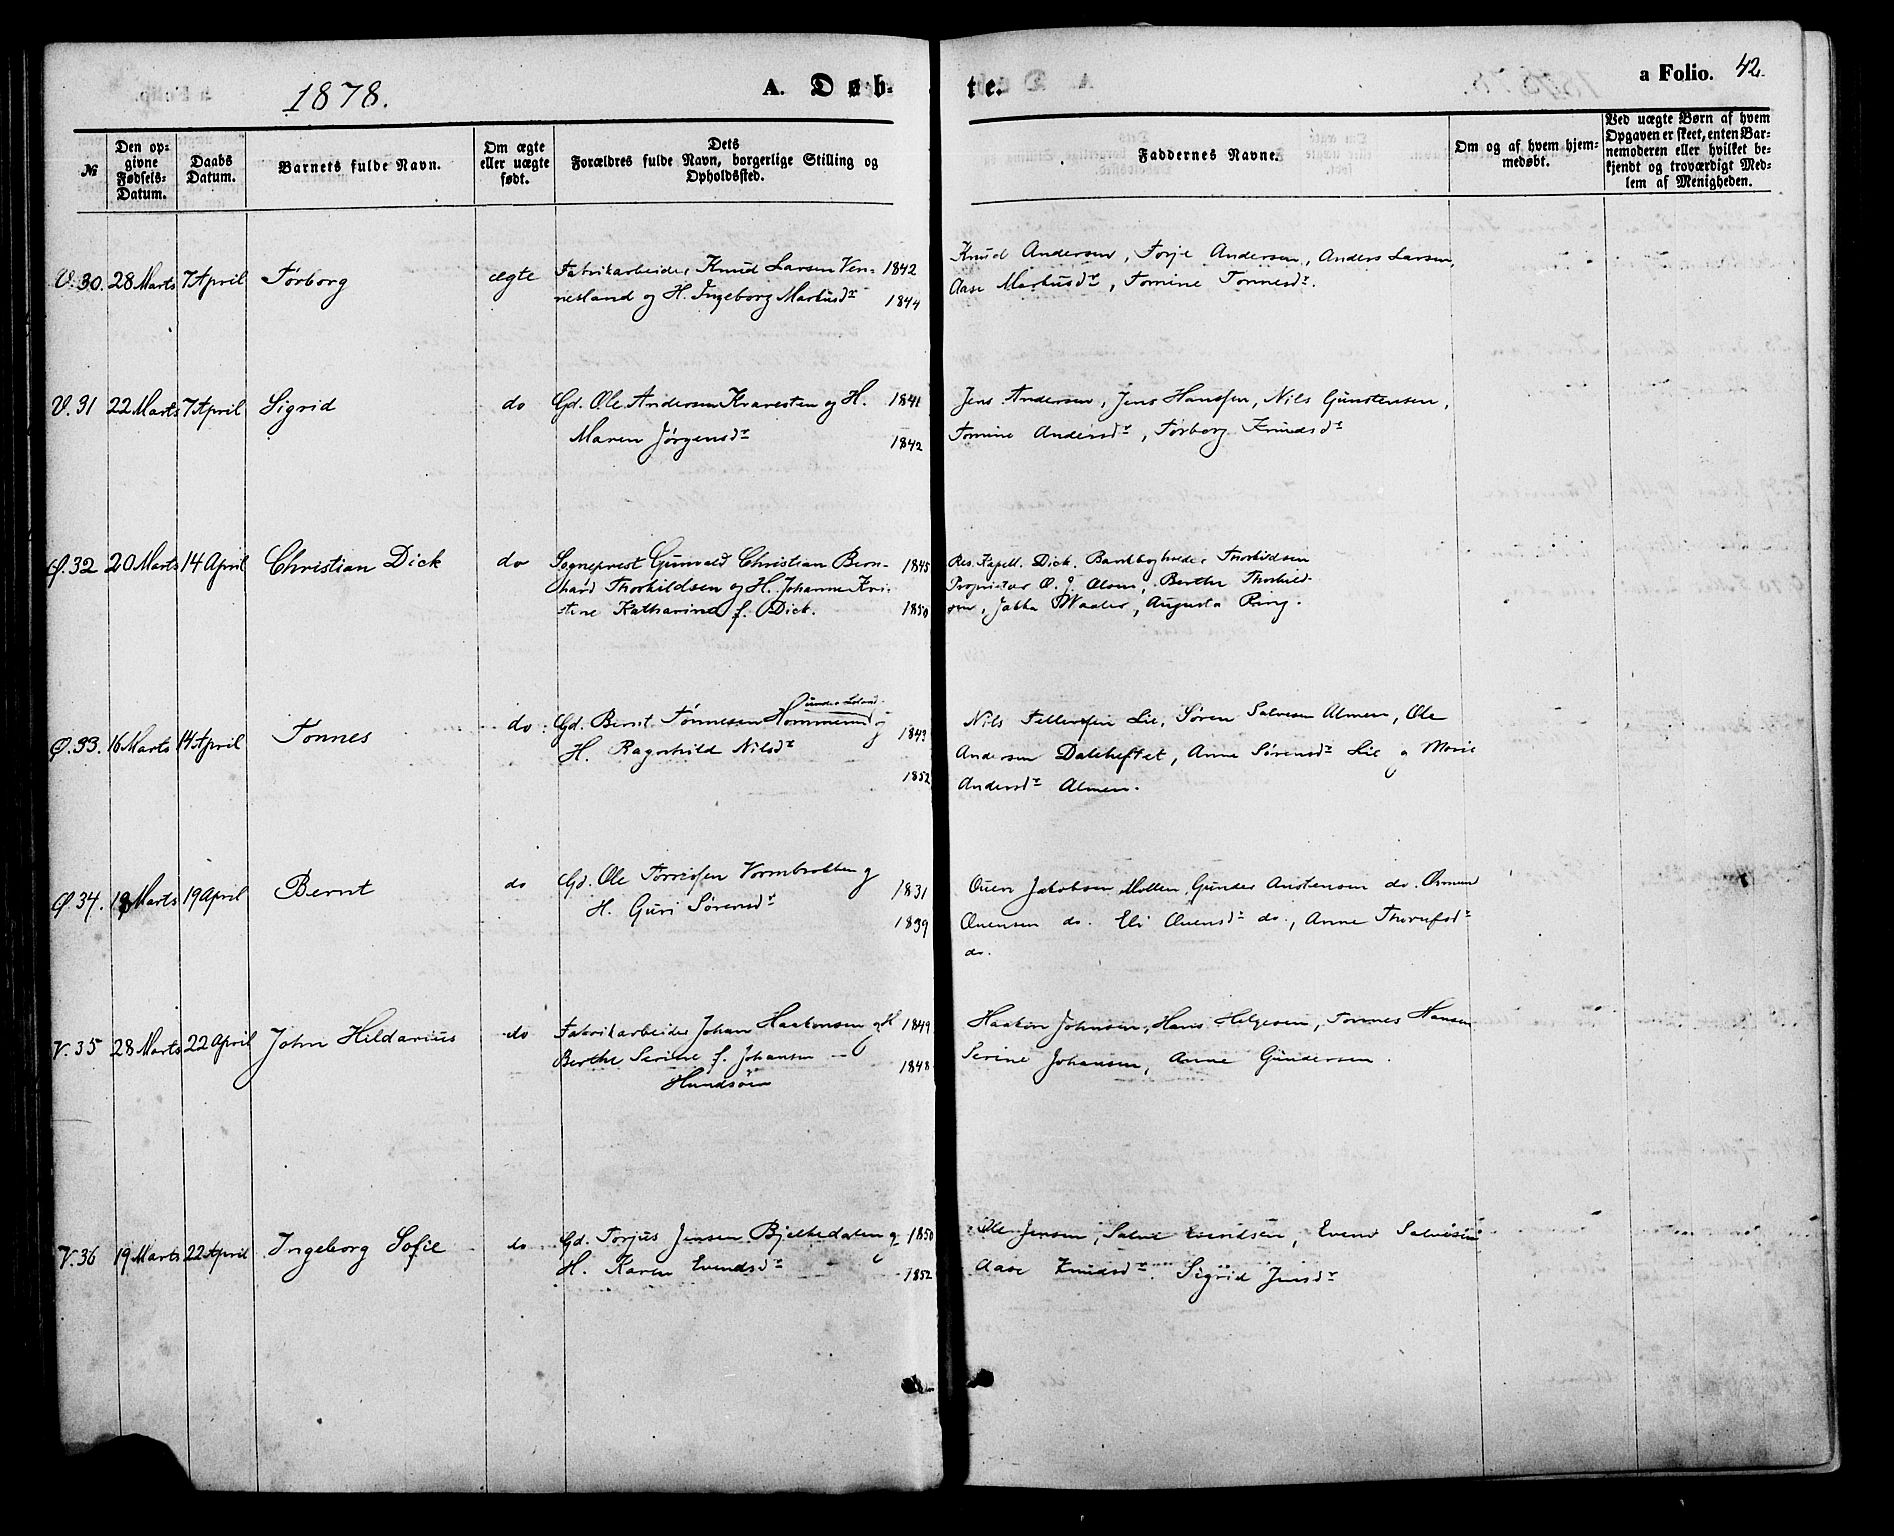 1878.
A. Døb-
te.
a Folio. 42.
№
Den op-
givne
Fødsels-
Datum.
Daabs
Datum.
Barnets fulde Navn.
Om ægte
eller uægte
født.
Dets
Forældres fulde Navn, borgerlige Stilling og
Opholdssted.
Faddernes Navne.
Om og af hvem hjem-
medøbt.
Ved uægte Børn af hvem
Opgaven er skeet, enten Bar-
nemoderen eller hvilket be-
kjendt og troværdigt Med-
lem af Menigheden.
V. 30. 28 Marts 7 April Torborg ægte
Fabrikarbeider Knud Larsen Ven- 1842
nesland og H. Ingeborg Markusdr 1844
Knud Andersen, Torje Andersen, Anders Larsen,
Aase Markusdr, Tomine Tonnesdr.
V. 31 22 Marts 7 April Sigrid do
Gd. Ole Andersen Kravesten og H. 1841
Maren Jørgensdr 1842
Jens Andersen, Jens Hanssen, Nils Gunstensen,
Tomine Andersdr, Torborg Knudsdr
Ø. 32 20 Marts 14 April Christian Dick do
Sogneprest Gunvald Christian Bern- 1845
hard Thorkildsen og H. Johanne Kri-
stine Katharina f. Dick. 1850
Res. Kapell. Dick. Bankbogholder Thorkildsen
Proprietær O. J. Olsen, Berthe Thorkild-
sen, Jakba Waaler, Augusta Ring.
Ø. 33. 16 Marts 14 April Tonnes do
under Loland
Gd. Bernt Tønnesen Hommemd og 1843
H. Ragnhild Nilsdr 1852
Nils Tellefsen Lie, Sören Salvesen Almen, Ole
Andersen Daleheftet, Anne Sørensdr Lie og Marie
Andersdr Almen.
Ø. 34. 19 Marts 19 April Bernt do
Gd. Ole Torrisen Vormbrokken og 1831
H. Guri Sørensdr 1839
Ouen Jakobsen Mollen, Gunder Anstensen do. Osmun
Ouensen do. Eli Ouensdr do., Anne
do.
V. 35 28 Marts 22 April John Hildarius do
Fabrikarbeider Johan Haakonsen og H 1849
Berthe Serine f. Johansen 1848
Hundsöen
Haakon Johnsen, Hans Helgesen, Tonnes Hansen
Serine Johansen, Anne Gundersen.
V. 36 19 Marts 22 April Ingeborg Sofie do
Gd. Torjus Jensen Bjelkedalen og 1850
H. Karen Evendsdr 1852
Ole Jensen, Salve Evendsen, Evend Salvesen
Aase Knudsdr. Sigrid Jensdr